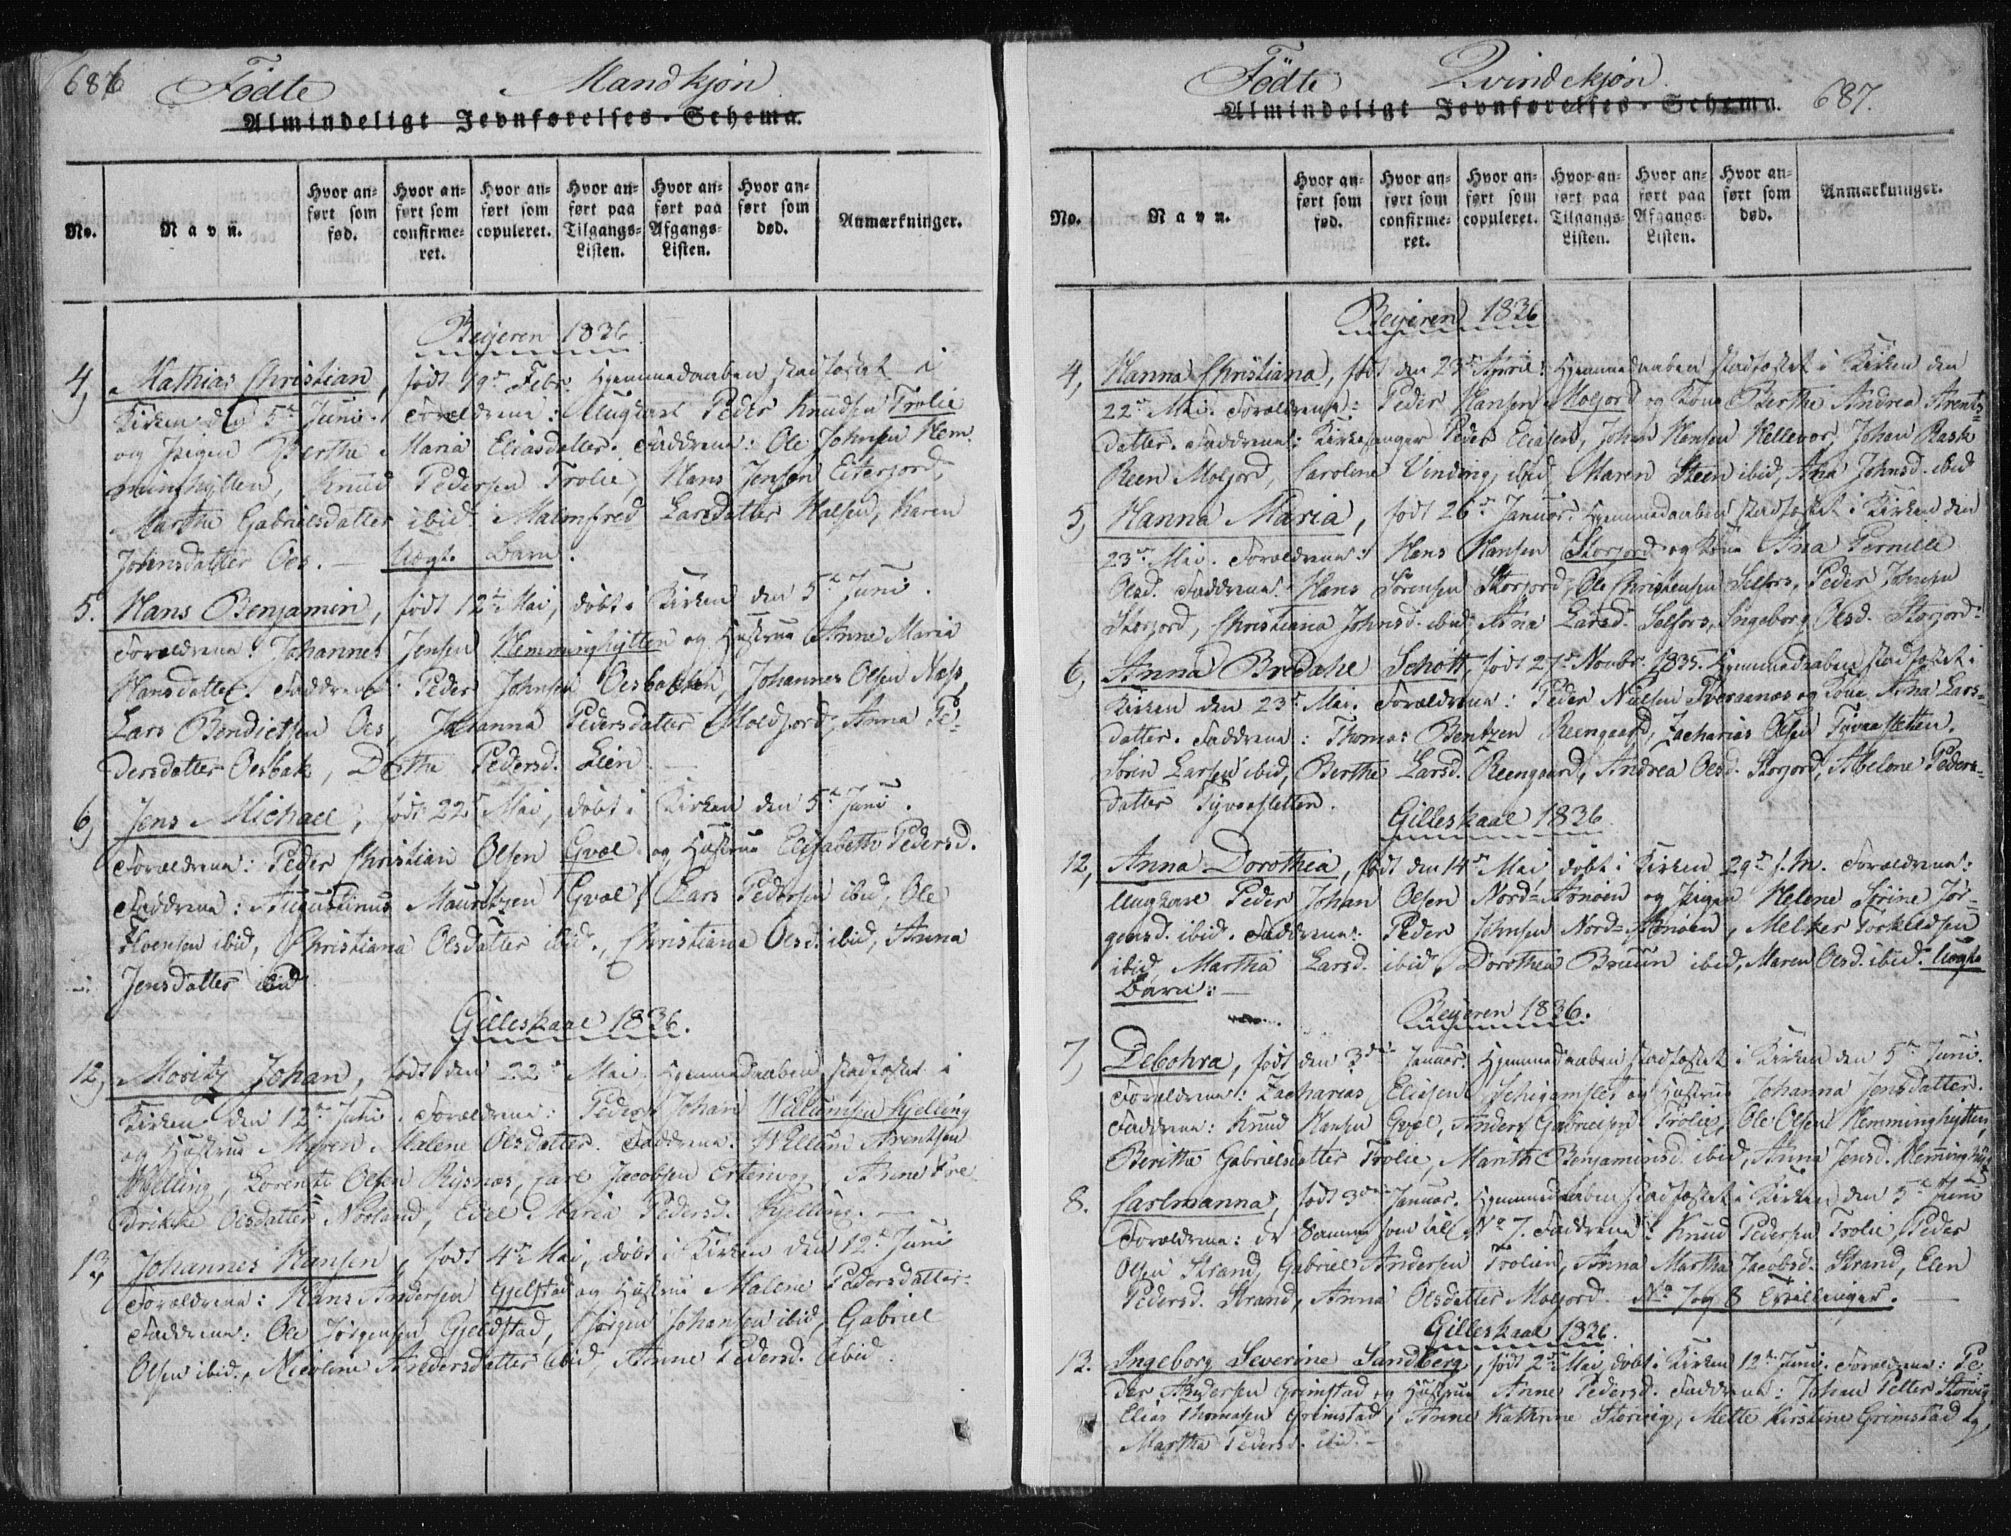 686
Födte Mandkjøn
Almindeligt Jevnførelses-Schema.
No.
Navn.
Hvor anført som fød.
Hvor anført som confirmeret.
Hvor anført som copuleret.
Hvor anført paa Tilgangs-Listen.
Hvor anført paa Afgangs-Listen.
Hvor anført som død.
Anmærkninger.
Beijeren 1836.
4, Mathias Christian, født 19de Febr. Hjemmedaaben stadfæstet i
Kirken den 5te Juni. Forældrene: Ungkarl Peder Knudsen Trolie
og Pigen Berthe Maria Eliasdatter. Faddrene: Ole Johnsen Hem-
minghytten, Knud Pedersen Trolie, Hans Jensen Eiterjord,
Marthe Gabrielsdatter ibid Malenfred Larsdatter Halsen, Karen
Johnsdatter Oes. — Uægte Barn.
5. Hans Benjamin, født 12te Mai, døbt i Kirken den 5te Juni.
Forældrene: Johannes Jensen Hemminghytten og Hustrue Anne Maria
Hansdatter. Faddrene: Peder Johnsen Oesbakken, Johannes Olsen Næss,
Lars Bendictsen Oes, Johanna Pedersdatter Moldjord, Anna Pe-
dersdatter Oesbak, Dorthe Pedersd. Lien. —
6, Jens Michael, født 22 Mai, døbt i Kirken den 5te Juni.
Forældrene: Peder Christian Olsen Gvæl og Hustrue Elisabeth Pedersd.
Faddrene: Augustinus Mauritzen Gvæl, Lars Pedersen ibid, Ole
Svensen ibid, Christiana Olsdatter ibid., Christiana Olsd. ibid, Anna
Jensdatter ibid
Gilleskaal 1836.
12, Moritz Johan, født den 22de Mai, Hjemmedaaben stadfæstet i
Kirken den 12te Juni. Forældrene: Peder Johan Willumsen Kjelling
og Hustrue Maren Malene Olsdatter. Faddrene: Willum Arentsen
Kjelling, Lorents Olsen Rysnæs, Carl Jacobsen Ertenvog, Anne Fre-
drikke Olsdatter Norland, Edel Maria Pedersd. Kjelling. —
13, Johannes Hansen, født 4de Mai, døbt i Kirken den 12te Juni
Forældrene: Hans Andersen Gjelstad og Hustrue Malene Pedersdatter.
Faddrene: Ole Jørgensen Gjeldstad, Jørgen Johansen ibid, Gabriel
Olsen ibid., Nicoline Andersdatter ibid, Anne Pedersd. ibid.
Födte Qvindekjøn
687.
Almindeligt Jevnførelses-Schema.
No.
Navn.
Hvor anført som fød.
Hvor anført som confirmeret.
Hvor anført som copuleret.
Hvor anført paa Tilgangs-Listen.
Hvor anført paa Afgangs-Listen.
Hvor anført som død.
Anmærkninger.
Beijeren 1836
4, Hanna Christiana, født den 23de April. Hjemmedaaben stadfæstet i Kirken den
22de Mai. Forældrene: Peder Hansen Moljord og Kone Berthe Andrea Arents-
datter. Faddrene: Kirkesanger Peder Eliasen, Johan Hansen Hellevor, Johan Rask
Reen Moljord, Caroline Vinding, ibid Maren Steen ibid, Ana Johnsd. ibid
5, Hanna Maria, født 26de Januar. Hjemmedaaben stadfæstet i Kirken den
23de Mai. Forældrene: Hans Hansen Storjord og Kone Ana Pernille
Olsd. Faddrene: Hans Sörensen Storjord, Ole Christensen Selfors, Peder Johnsen
Storjord, Christiana Johnsd. ibid Ana Larsd. Selfors, Ingeborg Olsd. Storjord.
6, Anna Bredahl Schött, født 27de Novbr. 1835. Hjemmedaaben stadfæstet i
Kirken den 23de Mai. Forældrene: Peder Nielsen Tveraanæs og Kone Ana Lars-
datter. Faddrene: Thomas Bentzen Reengaard, Zacharias Olsen Tyvaasletten.
Sören Larsen ibid, Berthe Larsd. Reengaard, Andrea Olsd. Storjord, Abelone Peders-
datter Tyvaasletten.
Gilleskaal 1836.
12, Anna Dorothea, født den 14de Mai døbt i Kirken 29de s. M. Forældrene:
Ungkarl Peder Johan Olsen Nord-Arnøen og Pigen Helene Sørine Jör-
gensd. ibid. Faddrene: Peder Johnsen Nord-Arnøen, Melker Torkeldsen
ibid, Martha Larsd. ibid, Dorothea Bruun ibid, Maren Olsd. ibid. Uægte
Barn: —
Beijeren 1836.
7, Debohra, født den 3die Januar. Hjemmedaaben stadfæstet i Kirken den 5te Juni.
Forældrene: Zacharias Eliasen og Hustrue Johanna Jensdatter.
Faddrene: Knud Hansen Gvæl, Anders Gabrielsen Trolie, Ole Olsen Hemminghytten,
Beritha Gabrielsdatter Trolie, Marith Benjaminsd. ibid, Anna Jensd. Hemminghyt
8. Carlmanna, født 3die Januar. Hjemmedaaben stadfæstet i Kirken den 5te Juni
Forældrene: de samme som til No 7. Faddrene: Knud Pedersen Trolie, Peder
Olsen Strand, Gabriel Andersen Trolien, Anna Martha Jacobsd. Strand, Elen
Pedersd. Strand, Anna Olsdatter Moljord. No 7 og 8 Tvillinger. —
Gilleskaal 1836.
13. Ingeborg Severine Sandberg, født 2den Mai, døbt i Kirken 12te Juni. Forældrene: Pe-
der Andersen Grimstad og Hustrue Anne Pedersd. Faddrene: Johan Petter Storvig,
Elias Thomasen Grimstad, Anne Kathrine Storvig, Mette Kirstine Grimstad og
Martha Pedersd. ibid. —